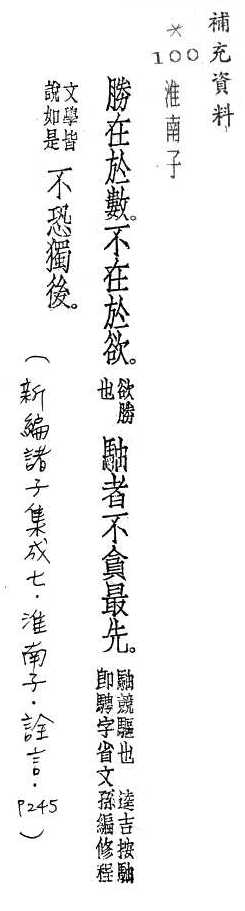 補充資料
*100 淮南子
勝在於數。不在於欲。欲勝也駎者不貪最先。駎競驅也 逵吉按駎卽騁字省文孫編修程
文學皆說如是不恐獨後。
(新編諸子集成七·淮南子·詮言·P245)